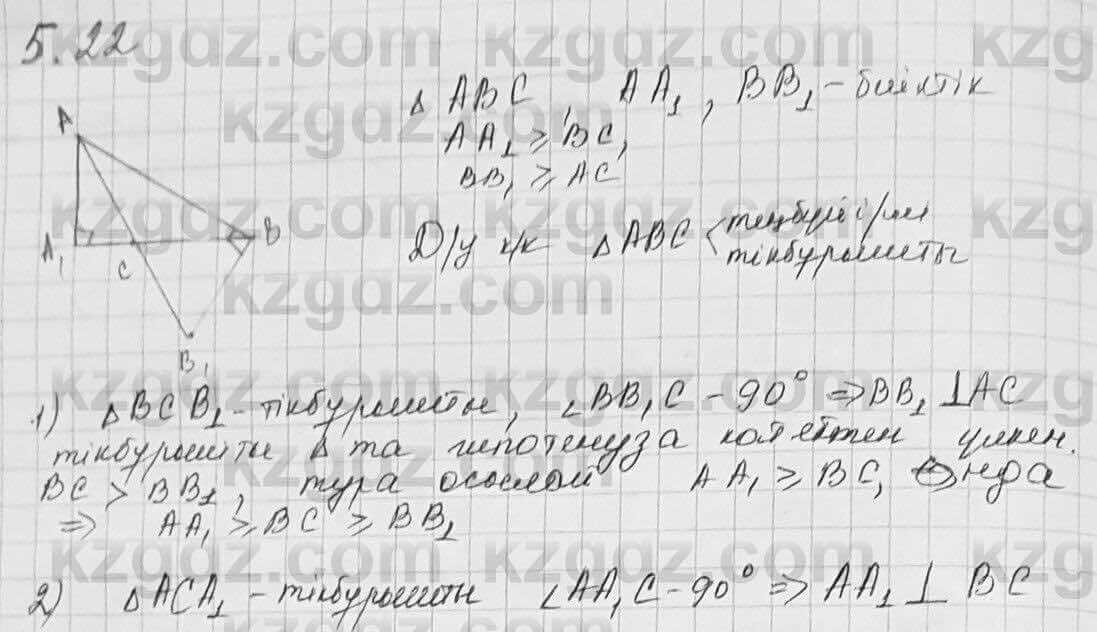 5.22
△ ABC, AA₁, BB₁ – биіктік
AA₁ ≥ BC,
BB₁ ≥ AC
Д/у к/к △ABC < теңбүйірлі
тікбұрышты
A
A₁
C
B
B₁
1) △BCB₁ – тікбұрышты, ∠BB₁C – 90° ⇒ BB₁ ⊥ AC
тікбұрышты △ та гипотенуза катеттен үлкен.
BC > BB₁, тура осылай AA₁ ≥ BC, Онда
⇒ AA₁ ≥ BC ≥ BB₁
2) △ACA₁ – тікбұрышты ∠AA₁C – 90° ⇒ AA₁ ⊥ BC
kzgaz.com